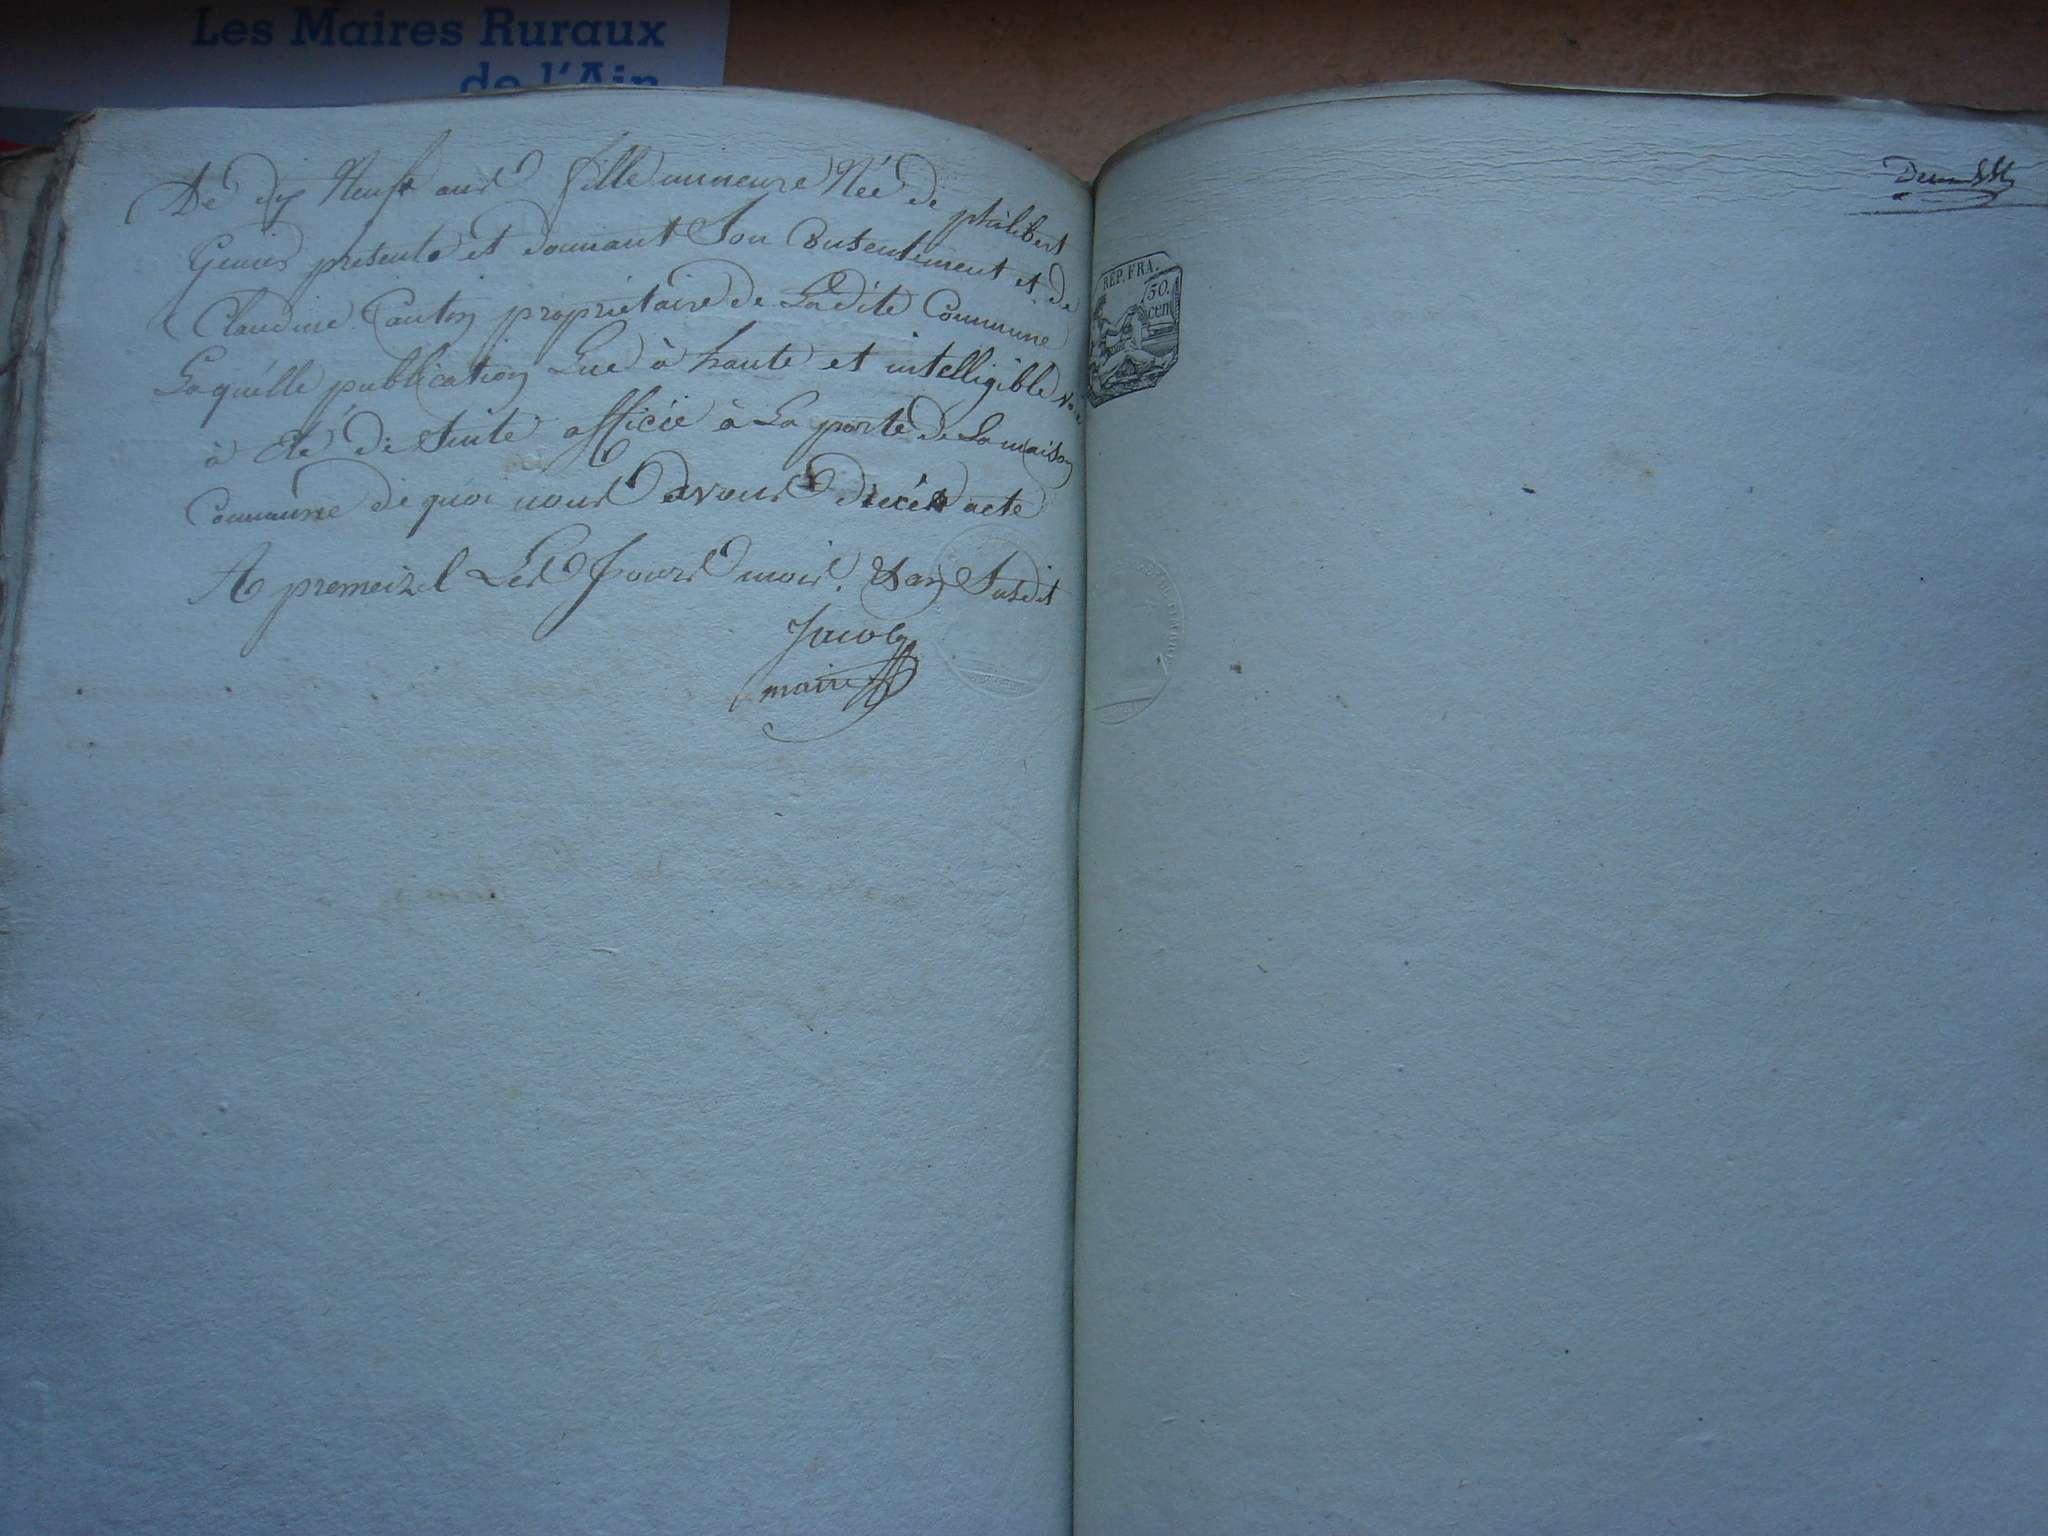 Les Maires Ruraux
de l'Ain
De dix Neuf ans fille mineure Née de philibert
Genier présente et donnant Son Consentement et de
Claudine Canton propriétaire de La dite Commune
Laquélle publication Lue à haute et intelligible voix
à été de Suite afficié à La porte de La maison
Commune de quoi nous avons acte
A premeizel Les Jours mois & an Susdit
Jacob
maire
REP. FRA.
50.
cen